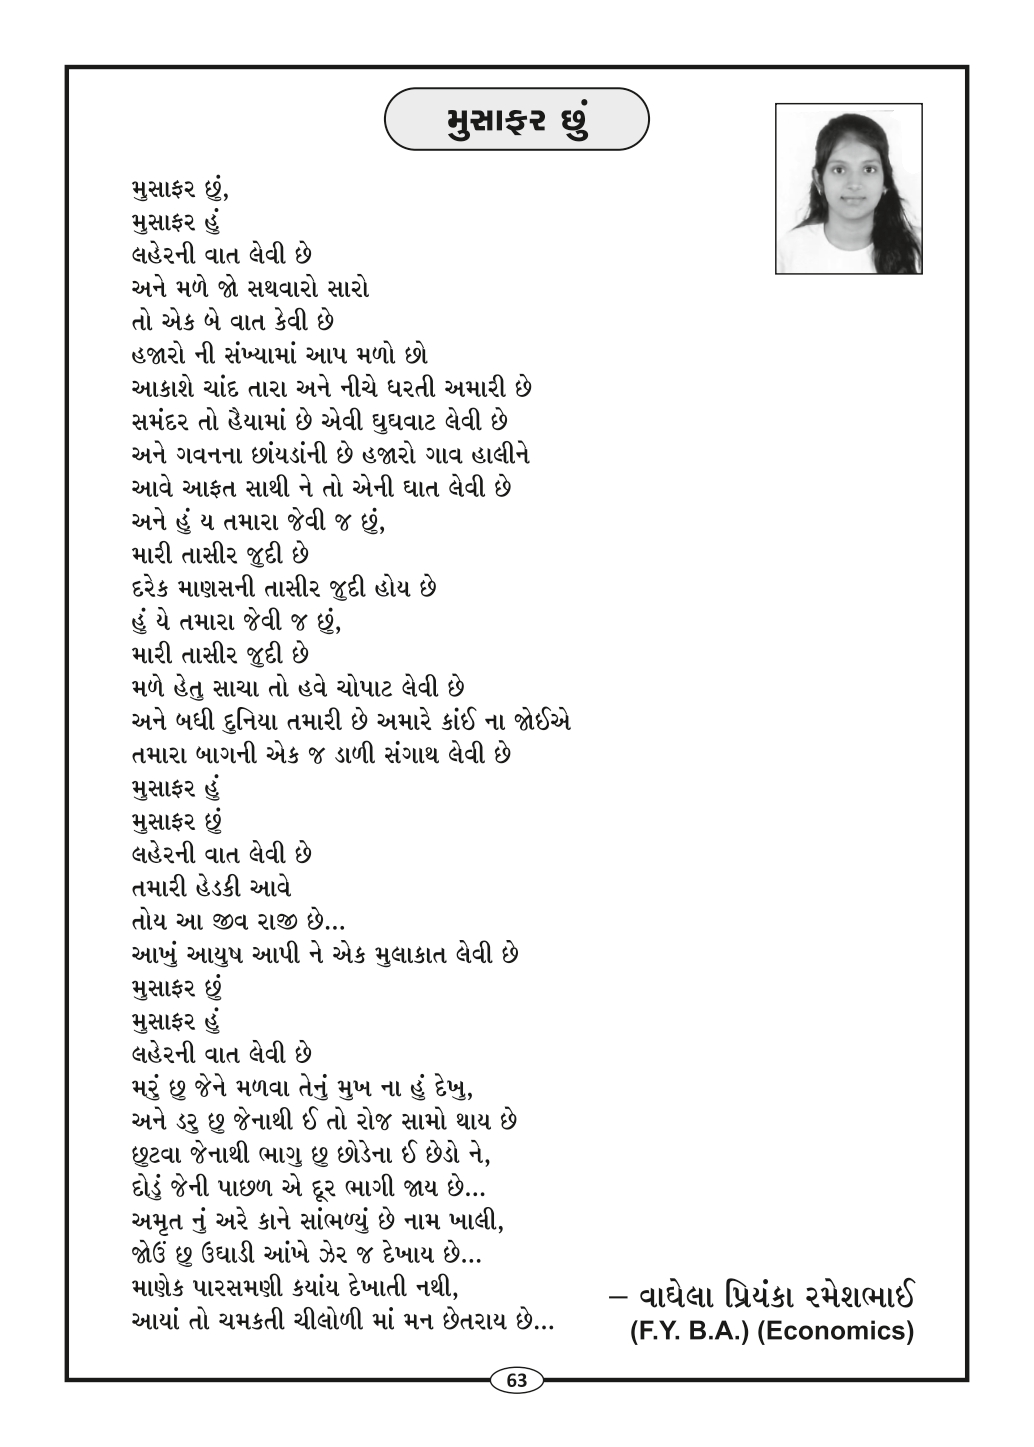 મુસાફર છું
મુસાફર છું,
મુસાફર હું
લહેરની વાત લેવી છે
અને મળે જો સથવારો સારો
તો એક બે વાત કેવી છે
હજારો ની સંખ્યામાં આપ મળો છો
આકાશે ચાંદ તારા અને નીચે ધરતી અમારી છે
સમંદર તો હૈયામાં છે એવી ઘુઘવાટ લેવી છે
અને ગવનના છાંયડાંની છે હજારો ગાવ હાલીને
આવે આફત સાથી ને તો એની ઘાત લેવી છે
અને હું ય તમારા જેવી જ છું,
મારી તાસીર જુદી છે
દરેક માણસની તાસીર જુદી હોય છે
હું યે તમારા જેવી જ છું,
મારી તાસીર જુદી છે
મળે હેતુ સાચા તો હવે ચોપાટ લેવી છે
અને બધી દુનિયા તમારી છે અમારે કાંઈ ના જોઈએ
તમારા બાગની એક જ ડાળી સંગાથ લેવી છે
મુસાફર હું
મુસાફર છું
લહેરની વાત લેવી છે
તમારી હેડકી આવે
તોય આ જીવ રાજી છે...
આખું આયુષ આપી ને એક મુલાકાત લેવી છે
મુસાફર છું
મુસાફર હું
લહેરની વાત લેવી છે
મરું છુ જેને મળવા તેનું મુખ ના હું દેખુ,
અને ડરુ છુ જેનાથી ઈ તો રોજ સામો થાય છે
છુટવા જેનાથી ભાગુ છુ છોડેના ઈ છેડો ને,
દોડું જેની પાછળ એ દૂર ભાગી જાય છે...
અમૃત નું અરે કાને સાંભળ્યું છે નામ ખાલી,
જોઉં છુ ઉઘાડી આંખે ઝેર જ દેખાય છે...
માણેક પારસમણી કયાંય દેખાતી નથી,
આયાં તો ચમકતી ચીલોળી માં મન છેતરાય છે...
– વાઘેલા પ્રિયંકા રમેશભાઈ
(F.Y. B.A.) (Economics)
63